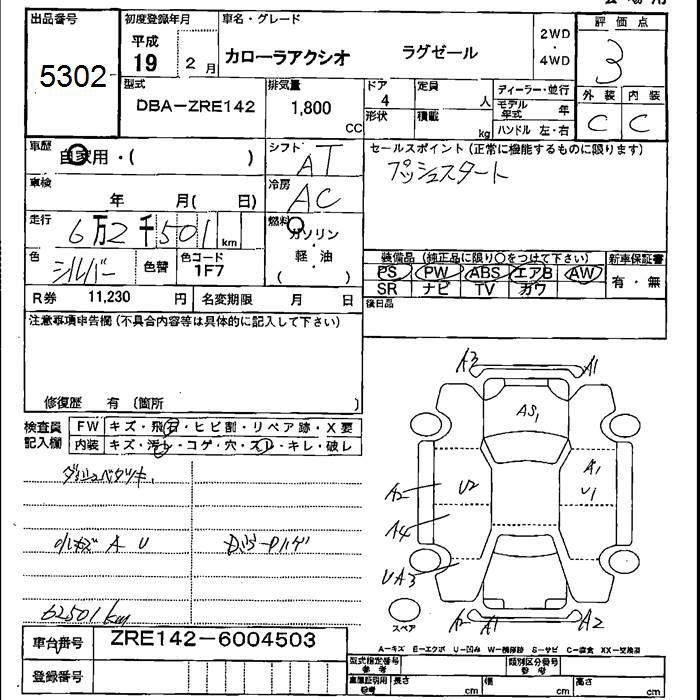 出品番号
5302
初度登録年月
平成
19 2 月
車名・グレード
カローラアクシオ ラグゼール
2WD
・
4WD
評価点
3
型式
DBA-ZRE142
排気量
1,800
CC
ドア
4
形状
定員
人
積載
kg
ディーラー・並行
モデル年式 年
ハンドル 左・右
外装 内装
C C
車歴
自家用・( )
シフト
AT
セールスポイント(正常に機能するものに限ります)
プッシュスタート
車検
年 月( 日)
冷房
AC
走行
6万2千501 km
燃料
ガソリン
・
軽油
( )
色
シルバー
色替
色コード
1F7
装備品(純正品に限り○をつけて下さい)
新車保証書
PS PW ABS エアB AW
SR ナビ TV カワ
有・無
R券 11,230 円
名変期限 月 日
後日品
注意事項申告欄(不具合内容等は具体的に記入して下さい)
修復歴 有(箇所 )
検査員記入欄
FW キズ・飛石・ヒビ割・リペア跡・X要
内装 キズ・汚れ・コゲ・穴・スレ・キレ・破レ
小キズ A U
62501km
A3 A1
AS1
A2 U2 A1
U1
A4
UA3
A1 A2
スペア
A-キズ E-エクボ U-凹み W-補修跡 S-サビ C-腐食 XX-交換済
車台番号
ZRE142-6004503
登録番号
型式指定番号
類別区分番号
長さ cm 幅 cm 高さ cm